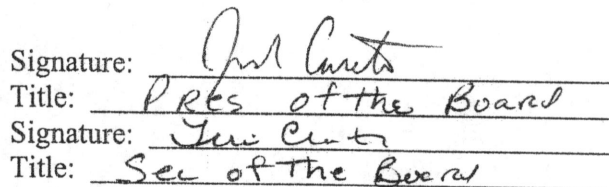 Signature:
Title: PRES of the Board
Signature:
Title: Sec of The Board